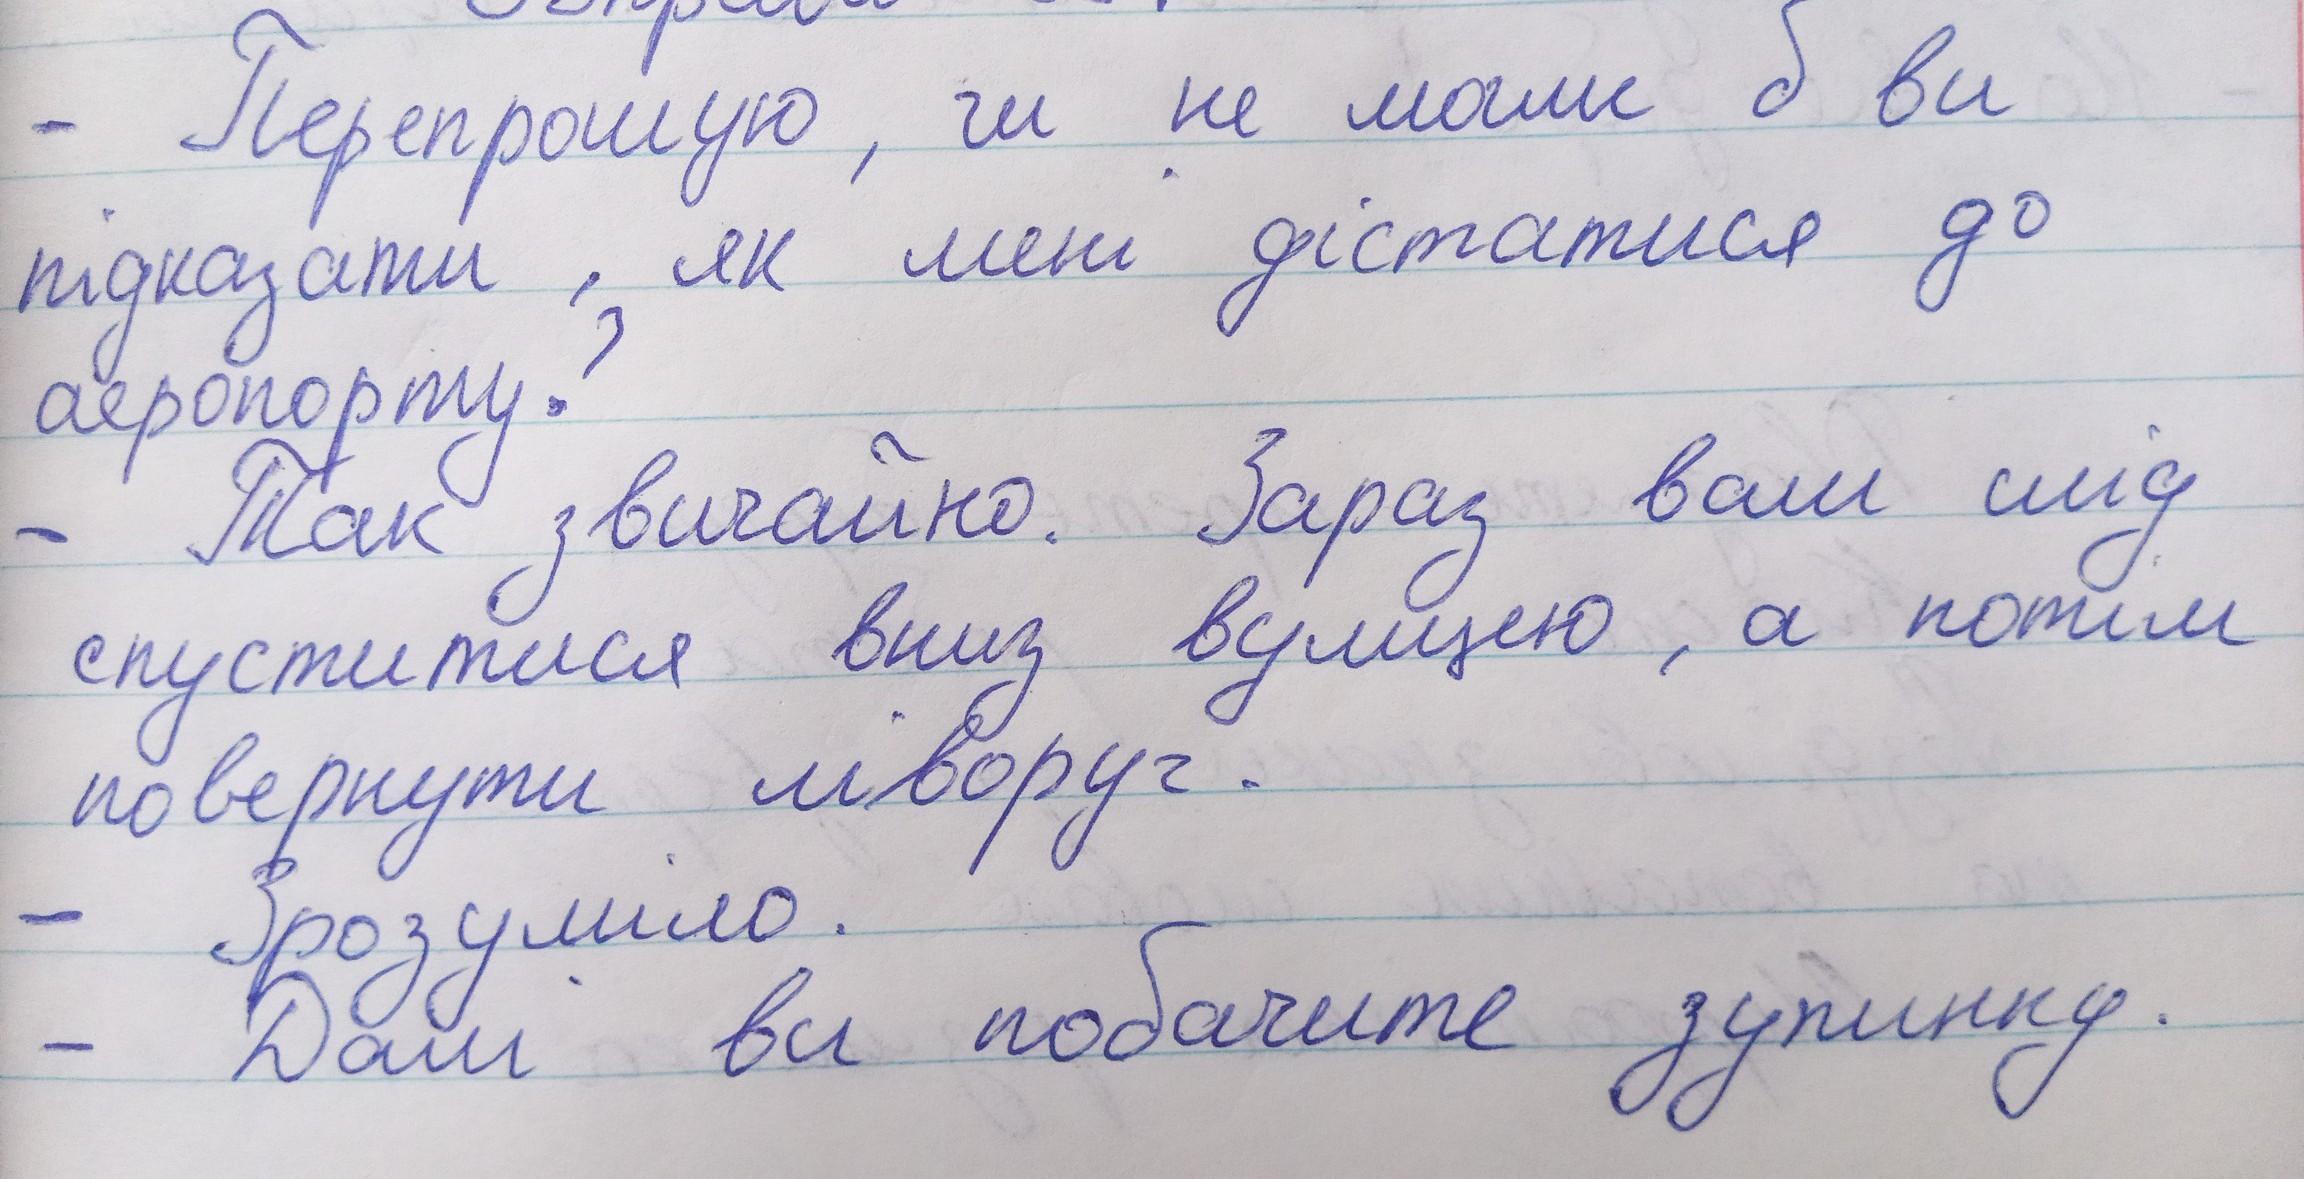 - Перепрошую, чи не мали б ви
підказати, як мені дістатися до
аеропорту?
- Так звичайно. Зараз вам слід
спуститися вниз вулицею, а потім
повернути ліворуч.
- Зрозуміло.
- Далі ви побачите зупинку.